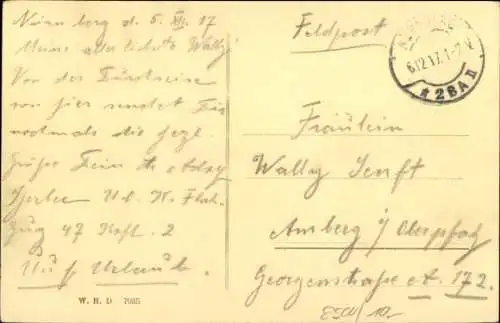 Nürnberg d. 5. XII. 17
Meine allerliebste Wally!
Von der Durchreise
von hier sendet Dir
nochmals die herzl.
Grüße Dein
U. K. Flak
Zug 47 2
Auf Urlaub.
W. H. D 7985
Feldpost
6.12.17. 1-2 N.
* 2BA II
Fräulein
Wally Senft
Amberg i/ Oberpfalz
Georgenstraße A. 172.